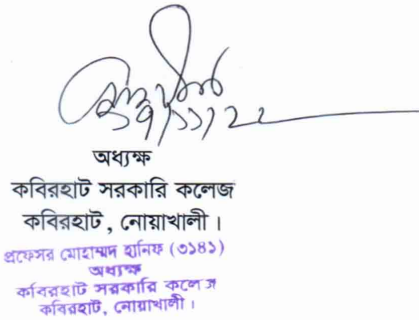 অধ্যক্ষ
কবিরহাট সরকারি কলেজ
কবিরহাট, নোয়াখালী।
প্রফেসর মোহাম্মদ হানিফ (৩১৪১)
অধ্যক্ষ
কবিরহাট সরকারি কলেজ
কবিরহাট, নোয়াখালী।